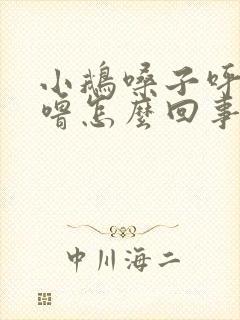 小鹅嗓子呼
噜怎麼回事
中川海二